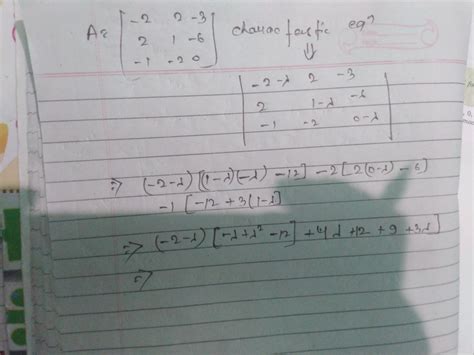 A = [ -2 2 -3
2 1 -6
-1 -2 0 ] charac teristic eqn
⇓
| -2-λ 2 -3
2 1-λ -6
-1 -2 0-λ |
⇒ (-2-λ) [(1-λ)(-λ) -12] -2[2(0-λ) -6]
-1 [-12 + 3(1-λ]
⇒ (-2-λ) [-λ+λ² -12] +4λ +12 + 9 + 3λ]
⇒